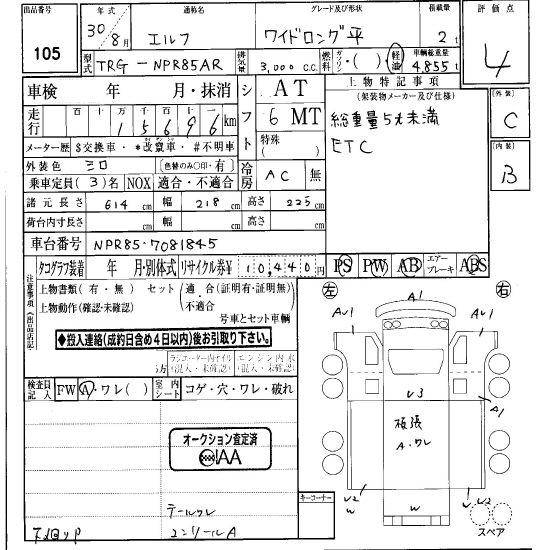 出品番号 年式 通称名 グレード及び形状 積載量 評価点
105 30年8月 エルフ ワイドロング 平 2t 4
型式 TRG-NPR85AR 排気量 3,000 C.C. 燃料 ガソリン・( )・軽油 車輌総重量 4,855t
車検 年 月・抹消 シフト AT 上物特記事項
(架装物メーカー及び仕様)
走行 百 十 万 千 百 十 km
1 5 6 9 6
6 MT
総重量5t未満
ETC
[外装]
C
メーター歴 $交換車・*改竄車・#不明車
特殊( )
外装色 シロ [色替のみ〇印・有]
[内装]
B
乗車定員(3)名 NOX 適合・不適合 冷房 AC 無
諸元長さ 614cm 幅 218cm 高さ 225cm
荷台内寸長さ cm 幅 cm 高さ cm
車台番号 NPR85-7081845
タコグラフ装着 年 月・別体式 リサイクル券¥ 10,440円
PS PW AB エアーブレーキ ABS
注意事項(出品店記入)
上物書類(有・無) セット(適・合(証明有・証明無)・不適合)
上物動作(確認・未確認)
号車とセット車輌
◆搬入連絡(成約日含め4日以内)後お引取り下さい。
ラジエーター内オイル(混入・未確認) エンジン内水(混入・未確認)
検査員記入 FW A・ワレ( ) 室内シート コゲ・穴・ワレ・破れ
オークション査定済
AIAA
テールワレ
コーナー
左 右
A1
AU1 AU1
U3
A1
板張
A・ワレ
U2 W W U2
W
スペア